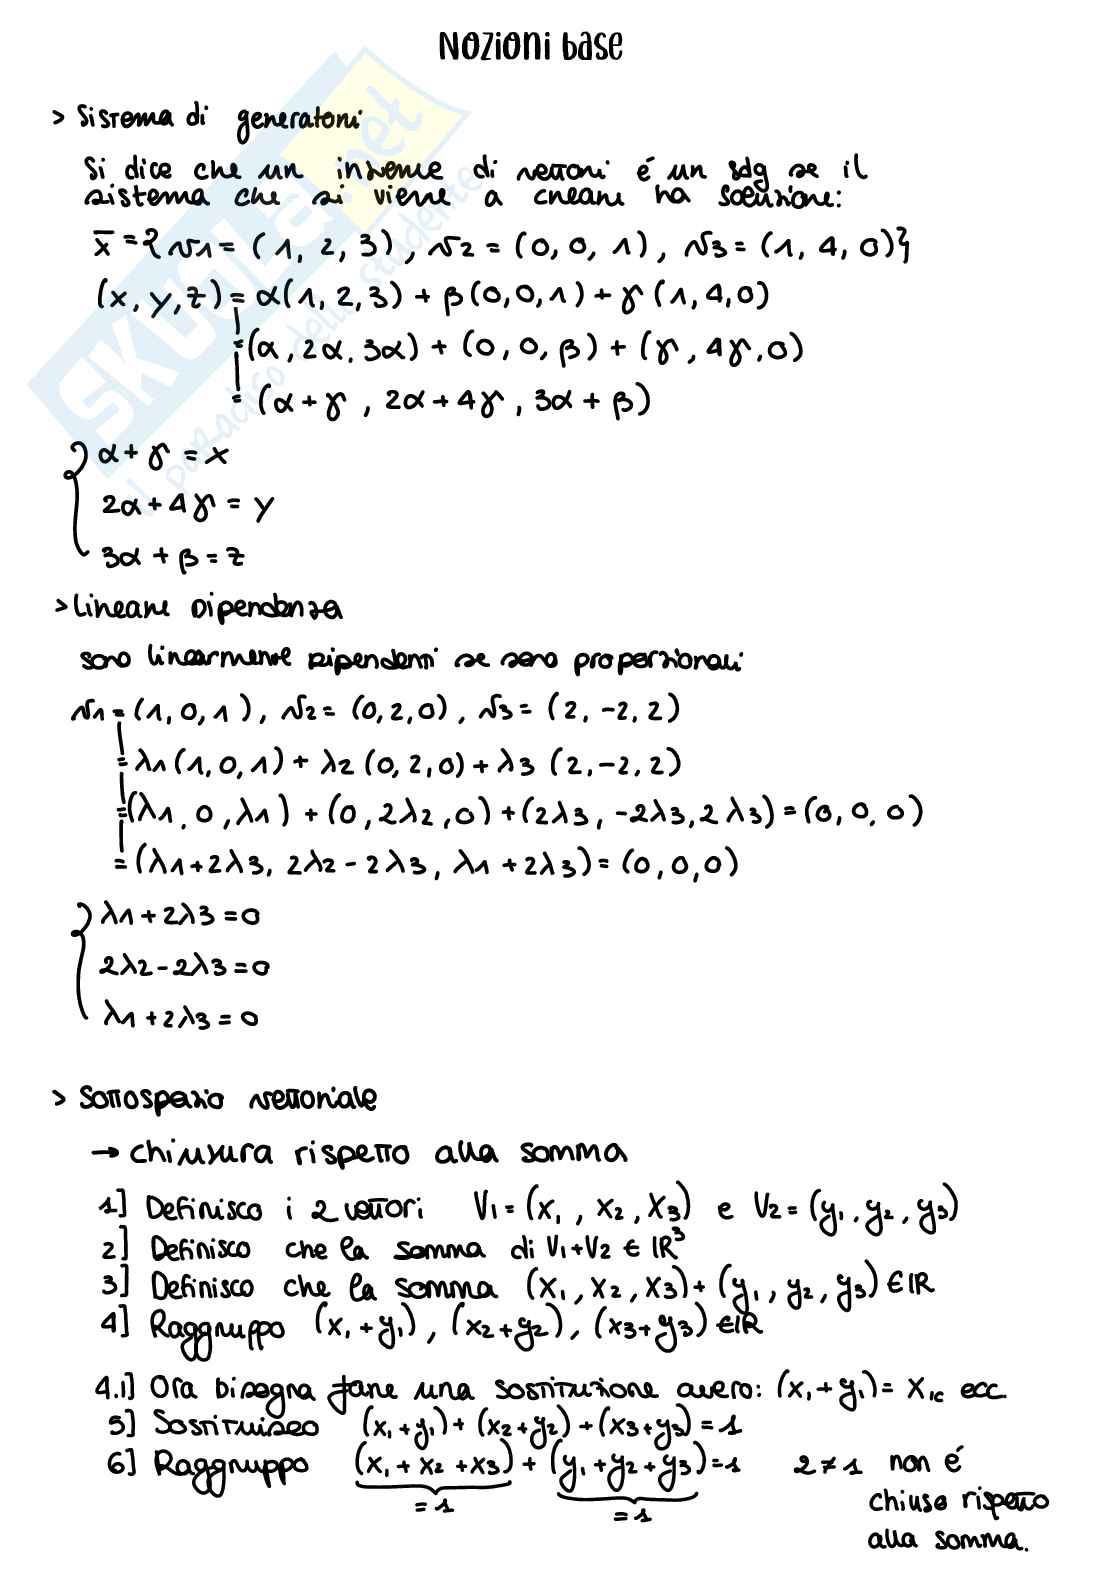 Nozioni base
> Sistema di generatori
Si dice che un insieme di vettori é un sdg se il
sistema che si viene a creare ha soluzione:
x̄ = {v1 = (1, 2, 3), v2 = (0, 0, 1), v3 = (1, 4, 0)}
(x, y, z) = α(1, 2, 3) + β(0,0,1) + γ(1,4,0)
= (α, 2α, 3α) + (0, 0, β) + (γ, 4γ, 0)
= (α + γ, 2α + 4γ, 3α + β)
{ α + γ = x
2α + 4γ = y
3α + β = z
> Lineare Dipendenza
sono linearmente dipendenti se sono proporzionali
v1 = (1, 0, 1), v2 = (0, 2, 0), v3 = (2, -2, 2)
= λ1(1, 0, 1) + λ2(0, 2, 0) + λ3(2, -2, 2)
= (λ1, 0, λ1) + (0, 2λ2, 0) + (2λ3, -2λ3, 2λ3) = (0, 0, 0)
= (λ1 + 2λ3, 2λ2 - 2λ3, λ1 + 2λ3) = (0, 0, 0)
{ λ1 + 2λ3 = 0
2λ2 - 2λ3 = 0
λ1 + 2λ3 = 0
> Sottospazio vettoriale
→ chiusura rispetto alla somma
1] Definisco i 2 vettori V1 = (x1, x2, x3) e V2 = (y1, y2, y3)
2] Definisco che la somma di V1+V2 ∈ IR³
3] Definisco che la somma (x1, x2, x3) + (y1, y2, y3) ∈ IR
4] Raggruppo (x1 + y1), (x2 + y2), (x3 + y3) ∈ IR
4.1] Ora bisogna fare una sostituzione avero: (x1 + y1) = x1c ecc.
5] Sostituisco (x1 + y1) + (x2 + y2) + (x3 + y3) = 1
6] Raggruppo (x1 + x2 + x3) + (y1 + y2 + y3) = 1 2 ≠ 1 non é
= 1 = 1 chiuso rispetto
alla somma.
SKUOLA.net
il paradiso dello studente